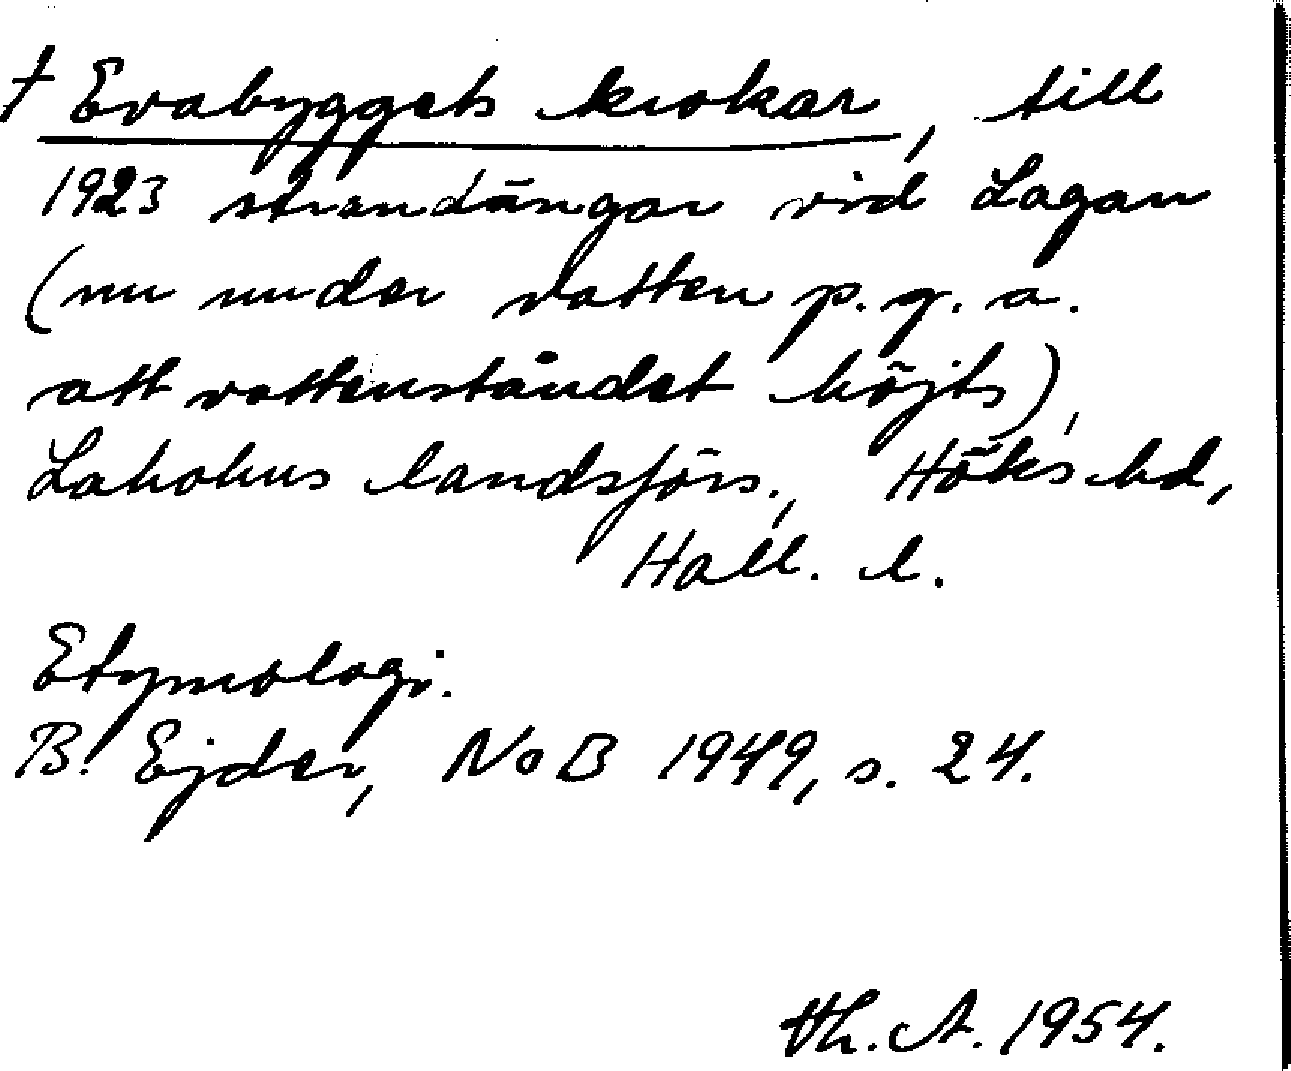 † Evabyggets krokar, till
1923 strandängar vid Lagan
(nu under vatten p. g. a.
att vattenståndet höjts),
Laholms landsförs., Höks hd,
Hall. l.
Etymologi.
B. Ejder, NoB 1949, s. 24.
Th. A. 1954.